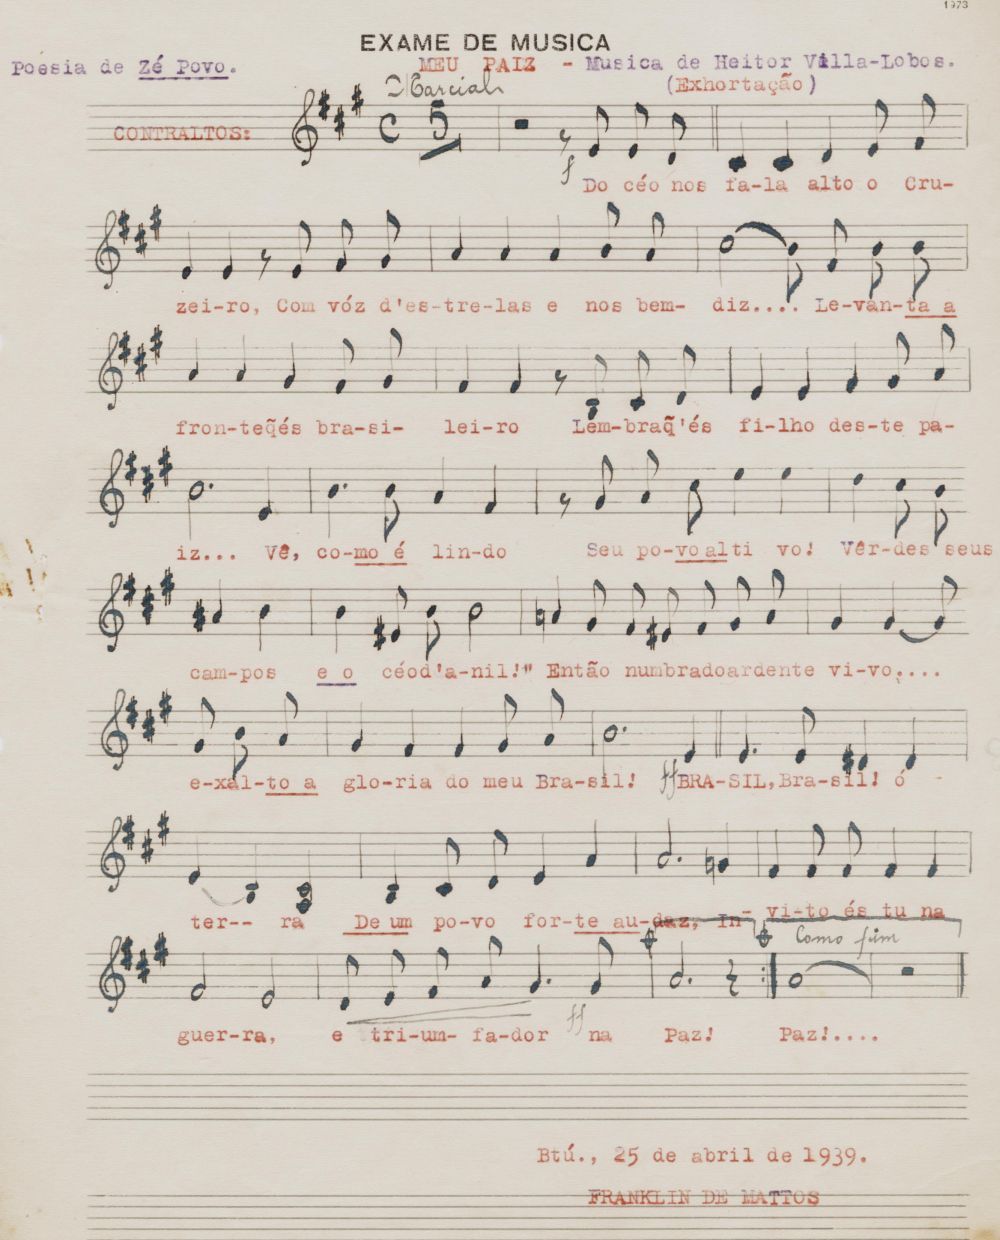 1973
EXAME DE MUSICA
Poesia de Zé Povo. MEU PAIZ - Musica de Heitor Villa-Lobos.
Marcial (Exhortação)
CONTRALTOS: 5
f
Do céo nos fa-la alto o Cru-
zei-ro, Com vóz d'es-tre-las e nos bem- diz.... Le-van-ta a
fron-teq̃és bra-si- lei-ro Lem-braq̃'és fi-lho des-te pa-
iz... Vê, co-mo é lin-do Seu po-vo alti vo! Vêr-des seus
cam-pos e o céod'a-nil!" Então numbradoardente vi-vo,...
e-xal-to a glo-ria do meu Bra-sil! ff BRA-SIL,Bra-sil! ó
ter-- ra De um po-vo for-te au-daz, In- vi-to és tu na
Como fim
ff
guer-ra, e tri-um- fa-dor na Paz! Paz!....
Btú., 25 de abril de 1939.
FRANKLIN DE MATTOS